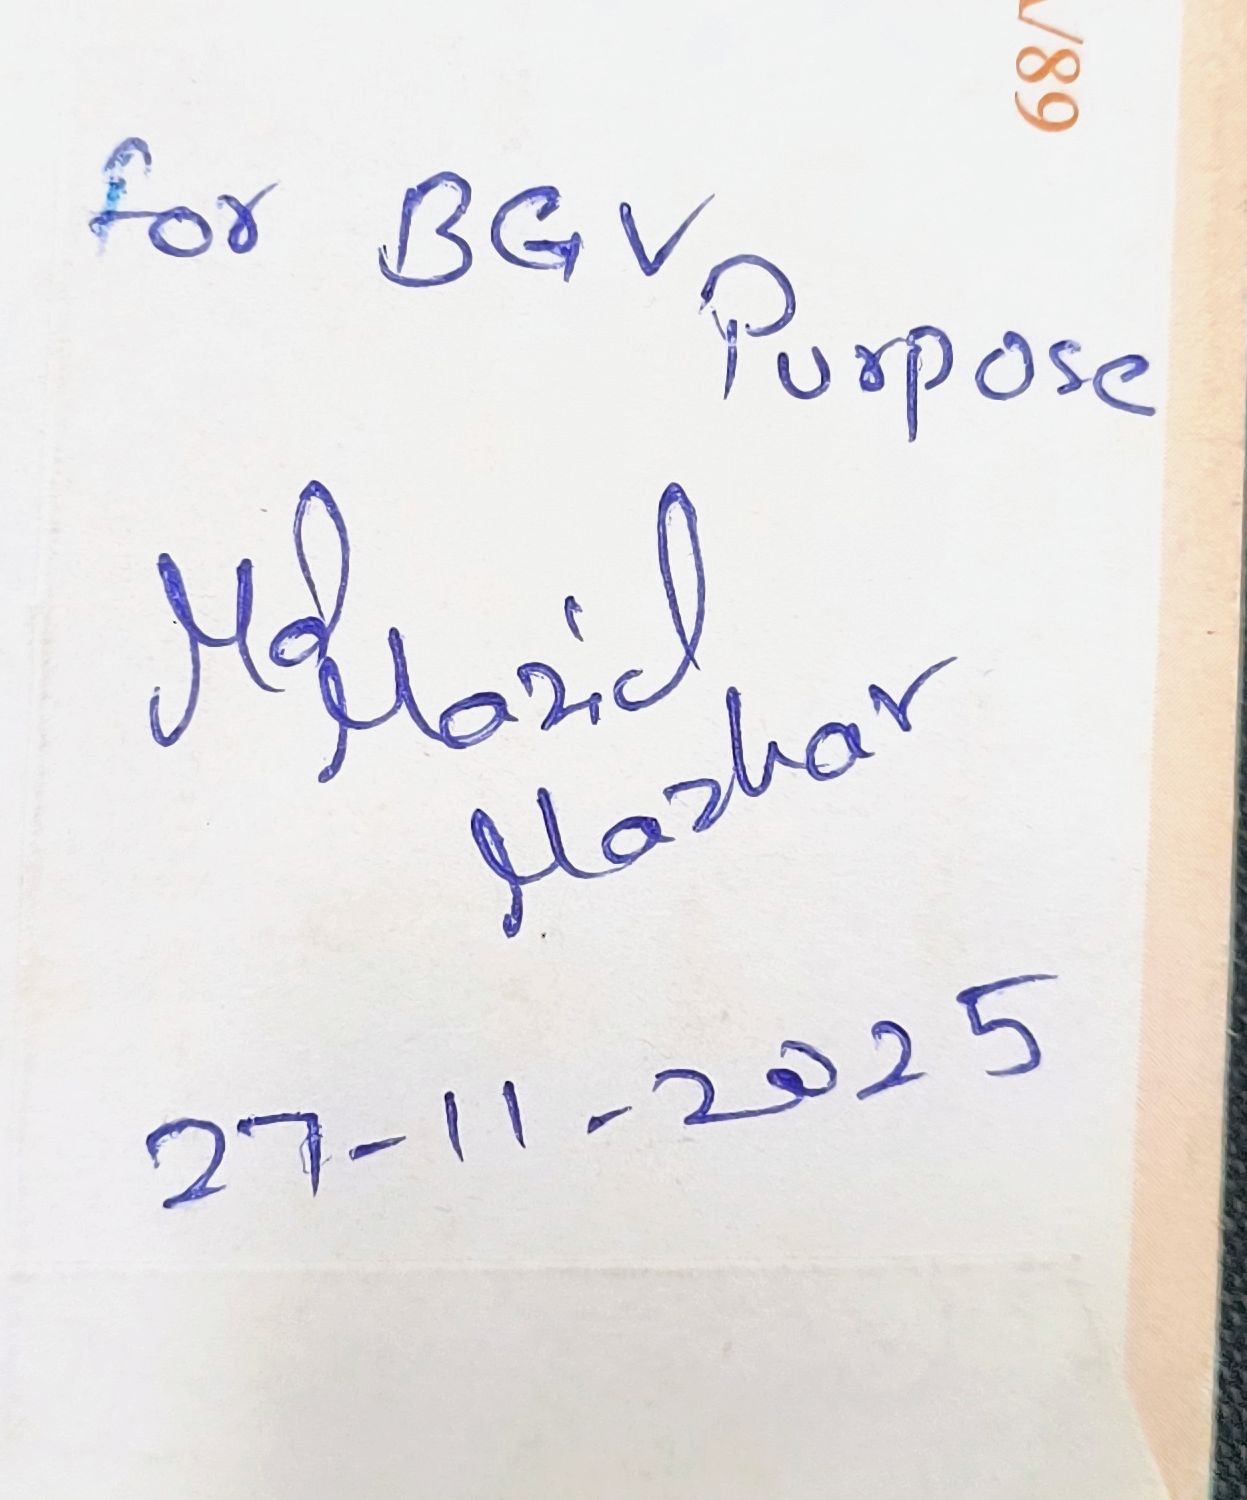 for BGV Purpose
Md Mazid
Mazhar
27-11-2025
/89